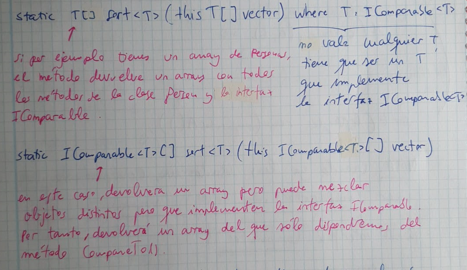 static T[] sort<T>(this T[] vector) where T: IComparable<T>
si por ejemplo tienes un array de Persona,
el método devuelve un array con todos
los métodos de la clase Persona y la interfaz
IComparable.
no vale cualquier T,
tiene que ser un T
que implemente
la interfaz IComparable<T>
static IComparable<T>[] sort<T>(this IComparable<T>[] vector)
en este caso, devolverá un array pero puede mezclar
objetos distintos pero que implementen la interfaz IComparable.
Por tanto, devolverá un array del que sólo dispondremos del
método CompareTo()